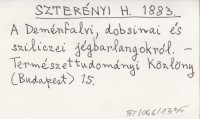 SZTERÉNYI H. 1883.
A Deménfalvi, dobsinai és
sziliczei jégbarlangokról. -
Természettudományi Közlöny
(Budapest) 15.